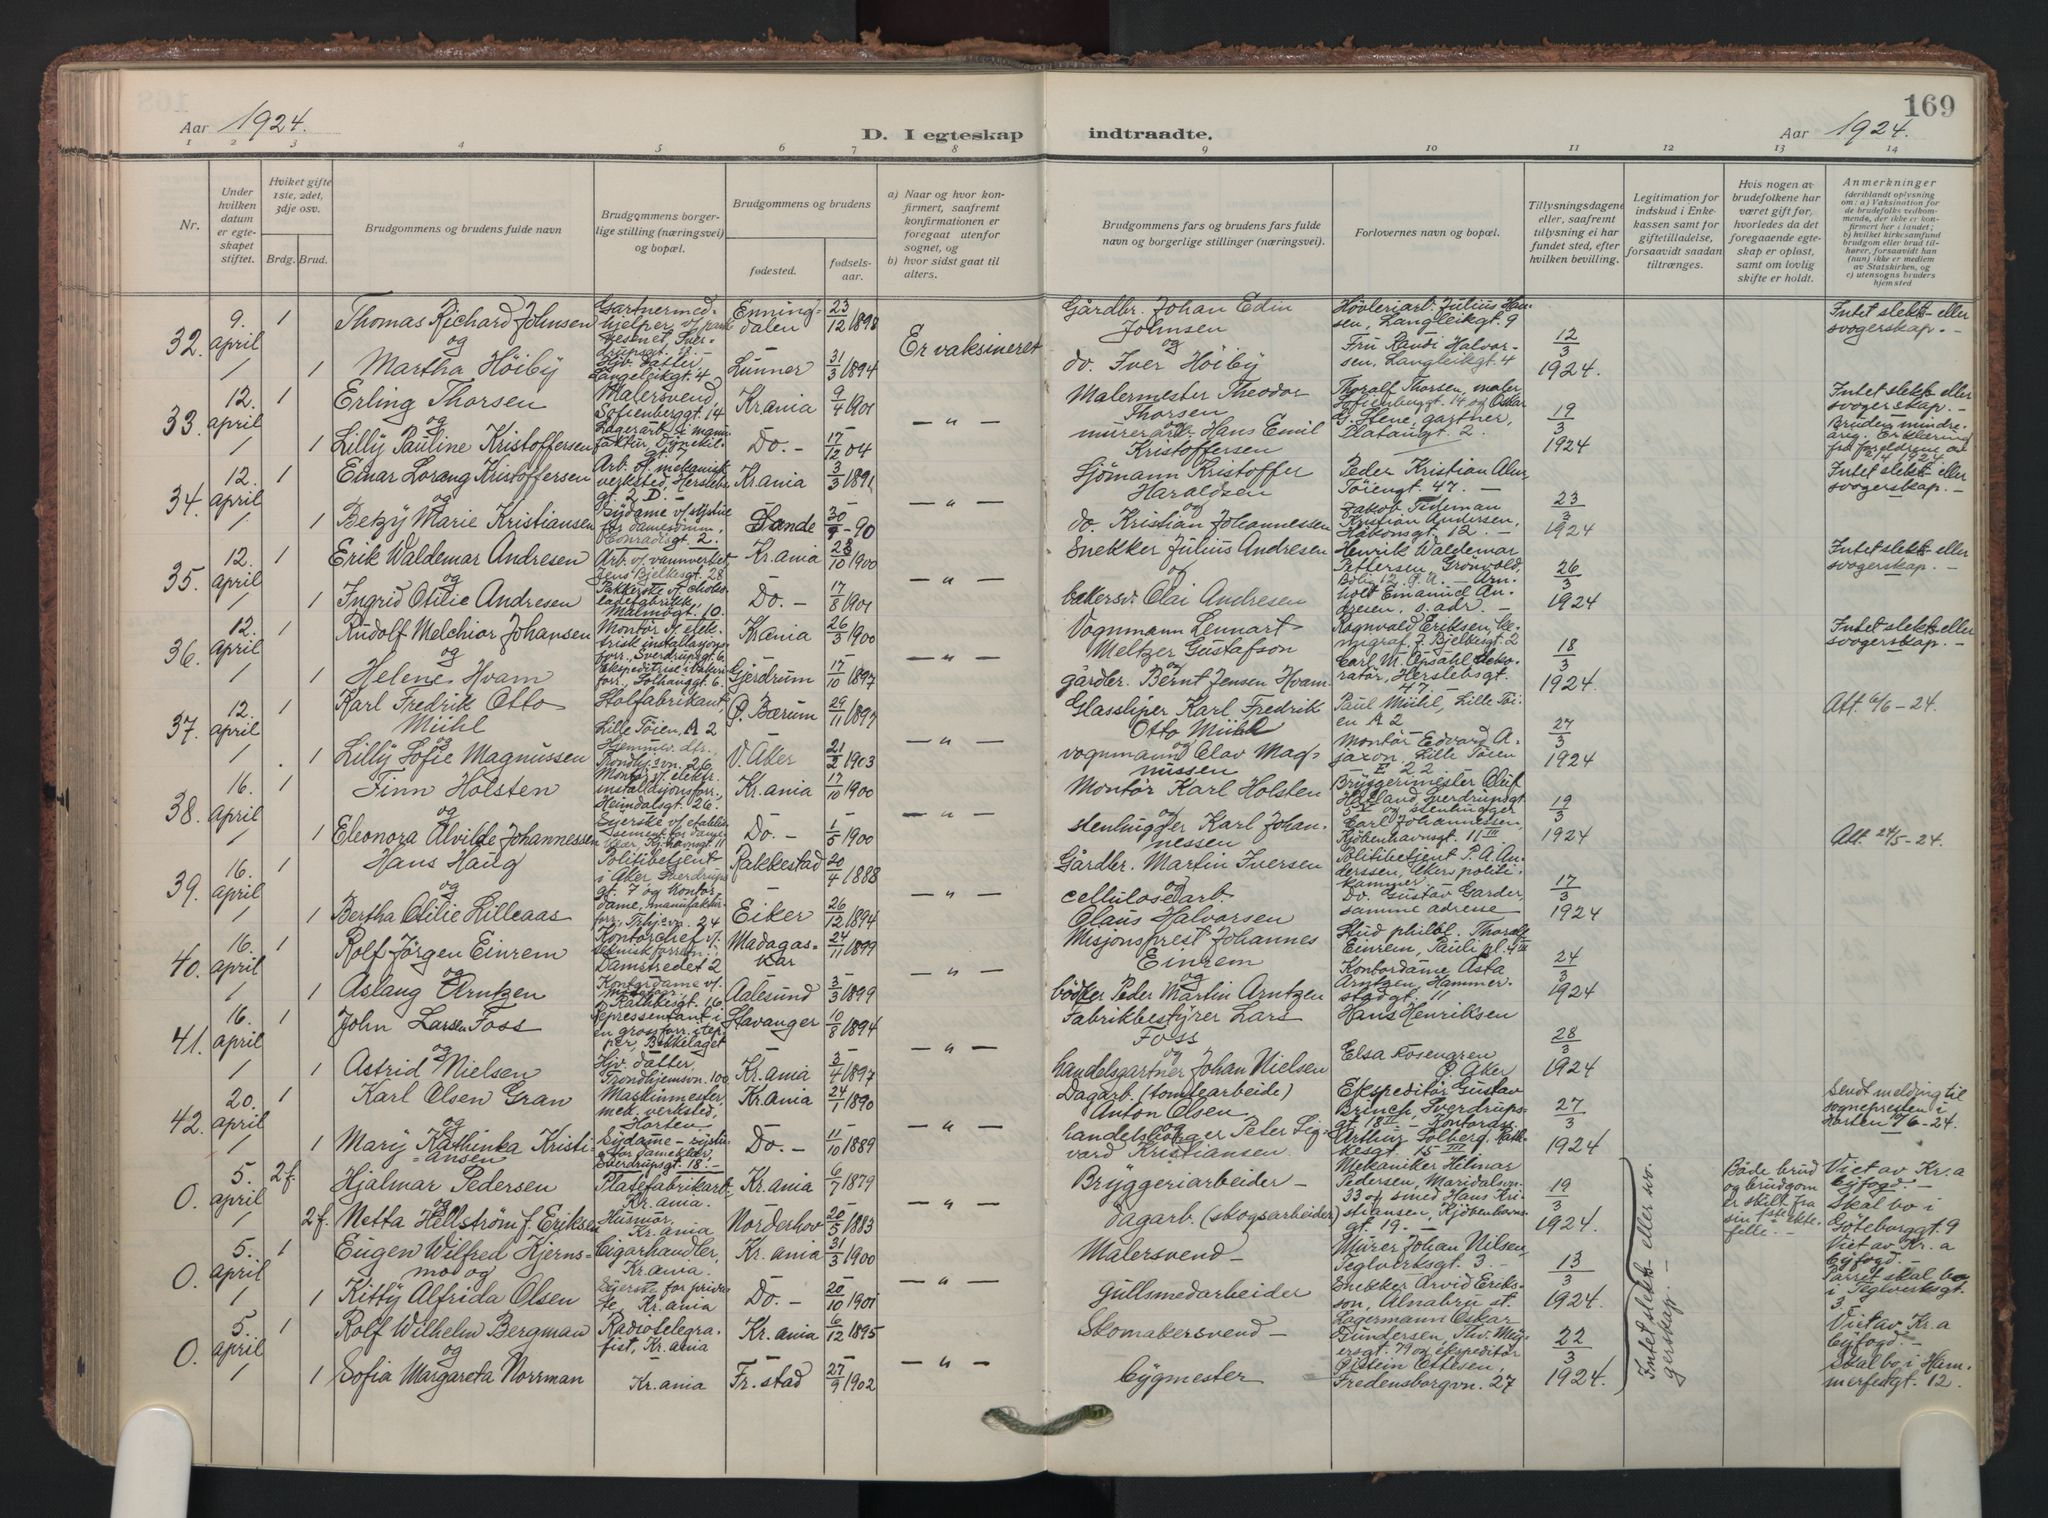 169
Aar 1924.
D. I egteskap indtraadte.
Aar 1924.
1 2 3 4 5 6 7 8 9 10 11 12 13 14
Nr.
Under hvilken datum er egteskapet stiftet.
Hviket gifte 1ste, 2det, 3dje osv.
Brdg. Brud.
Brudgommens og brudens fulde navn
Brudgommens borgerlige stilling (næringsvei) og bopæl.
Brudgommens og brudens
fødested.
fødselsaar.
a) Naar og hvor konfirmert, saafremt konfirmationen er foregaat utenfor sognet, og
b) hvor sidst gaat til alters.
Brudgommens fars og brudens fars fulde navn og borgerlige stillinger (næringsvei).
Forlovernes navn og bopæl.
Tillysningsdagene eller, saafremt tillysning ei har fundet sted, efter hvilken bevilling.
Legitimation for indskud i Enkekassen samt for giftetilladelse, forsaavidt saadan tiltrænges.
Hvis nogen av brudefolkene har været gift før, hvorledes da det foregaaende egteskap er opløst, samt om lovlig skifte er holdt.
Anmerkninger
(deriblandt oplysning om: a) Vaksination for de brudefolks vedkommende, der ikke er konfirmert her i landet; b) hvilket kirkesamfund brudgom eller brud tilhører, forsaavidt han (hun) ikke er medlem av Statskirken, og c) utensogns bruders hjemsted
32. 9. april 1 Thomas Richard Johnsen Enningdalen 23/12 1898 Er vaksineret Gårdbr. Johan Edin Johnsen Høvleriarb. Julius Hansen, Langleikgt. 9 12/3 1924. Intet slekt- eller svogerskap. -
og
1 Martha Höiby Hjv. datter Langeleikgt. 4 Lunner 31/3 1894 do. Iver Höiby Fru Randi Halvorsen, Langleikgt. 4
33. 12. april 1 Erling Thorsen Malersvend Sofienberggt. 14 Kr.ania 9/4 1901 - " - Malermester Theodor Thorsen Thoralf Thorsen, maler Sofienberggt. 14 og Oskar G. Stene, gartner, Platougt. 2. 19/3 1924 Intet slekt- eller svogerskap. -
og
1 Lilly Pauline Kristoffersen Do. - 17/12 04 murerarb. Hans Emil Kristoffersen
34. 12. april 1 Einar Lorang Kristoffersen Arb. v/ mekanisk verksted, Herslebgt. 2 D. - Kr.ania 3/3 1891 - " - Sjömann Kristoffer Haraldsen Peder Kristian Alm Töiengt. 47. - 23/3 1924 Intet slekt- eller svogerskap. -
og
1 Betzy Marie Kristiansen Sande 30/9 - 90 do. Kristian Johannessen Jakob Tideman Kristian Andersen, Håkonsgt. 12. -
35. 12. april 1 Erik Waldemar Andresen Arb. v/ vannverket Jens Bjelkesgt. 28 Kr.ania 23/10 1900 - " - Snekker Julius Andresen Henrik Waldemar Pettersen, Grönvold, 26/3 1924 Intet slekt- eller svogerskap. -
og
1 Ingrid Otilie Andresen Pakkerske v/ chokoladefabrikk Malmøgt. 10. Do. - 17/8 1901 bakersv. Olai Andresen Arnholt Emanuel Andresen, s. adr. -
36. 12. april 1 Rudolf Melchior Johansen Montør v/ elektrisk installasjonsforr., Sverdrupsgt. 6. Kr.ania 26/3 1900 - " - Vognmann Lennart Meltzer Gustafson Ragnvald Eriksen, J. Bjelkesgt. 2 18/3 1924 Intet slekt- eller svogerskap. -
og
1 Helene Hvam Gjerdrum 17/10 1897 gårdbr. Bernt Jensen Hvam Carl M. Opsahl dekoratör, Herslebsgt. 47. -
37. 12. april 1 Karl Fredrik Otto Mühl Stolfabrikant Lille Töien, A 2 Ø. Bærum 29/11 1897 - " - Glassliper Karl Fredrik Otto Mühl Paul Mühl, Lille Töien A 2 27/3 1924 Att. 6/6 - 24.
og
1 Lilly Sofie Magnussen Hjemmev. dtr., Trondhj.svn. 26 V. Aker 21/2 1903 vognmann Olav Magnussen montör Edvard Ajaxon. Lille Töien E 22
38. 16. april 1 Finn Holsten Montör v/ elektr. installasjonsforr., Heimdalsgt. 26. Kr.ania 17/10 1900 - " - Montör Karl Holsten Bryggerimester Olaf Hafland, Sverdrupsgt. 5 19/3 1924
og
1 Eleonora Alvilde Johannessen Do. - 1/5 1900 stenhugger Karl Johannessen og stenhugger Carl Johannessen, Kjöbenhavnsgt. 11 III Att. 24/5 - 24.
39. 16. april 1 Hans Haug Politibetjent i Aker Sverdrupsgt. 7 og kontordame, manufakturforr., Trhj.svn. 24 Rakkestad 20/4 1888 - " - Gårdbr. Martin Iversen Politibetjent P. A. Anderssen, Akers politikammer 17/3 1924
og
1 Bertha Otilie Lilleaas Eiker 26/12 1894 cellulosearb. Claus Halvorsen Do. Gustav Garder, samme adresse
40. 16. april 1 Rolf Jörgen Einrem Kontorchef v/ Damstredet 2 Madagaskar 24/11 1899 - " - Misjonsprest Johannes Einrem Stud philol. Thorolf Einrem, Pauli pl. 4 III 24/3 1924
og
1 Aslaug Arntzen Kontordame v/ Rathkesgt. 16 Aalesund 3/3 1899 bödker Peder Martin Arntzen Kontordame Asta Arntzen, Hammerstadgt. 11
41. 16. april 1 John Larsen Foss Repressentant i en grossforr. i tepper, Bekkelaget Stavanger 10/8 1894 - " - Fabrikbestyrer Lars Foss Hans Henriksen 28/3 1924
og
1 Astrid Nielsen Hjv. datter Trondhjemsvn. 100 Kr.ania 3/4 1897 handelsgartner Johan Nielsen Elsa Rosengren Ø. Aker
42. 20. april 1 Karl Olsen Gran Maskinmester, mek. verksted, Horten. Kr.ania 24/1 1890 Dagarb. (tomtearbeide) Anton Olsen, Ekspeditör Gustav Brinch, Sverdrupsgt. 18 27/3 1924 Sendt melding til sognepresten i Horten 10/6 - 24.
og
1 Mary Kathinka Kristiansen Sverdrupsgt. 18. - Do. - 11/10 1889 handelsborger Peter Sigvard Kristiansen. Arthur Solberg, Rathkesgt. 15 III
0. 5. april 2 f. Hjalmar Pedersen Platefabrikarb. Kr.ania. Kr.ania 6/7 1879 - " - Bryggeriarbeider - Mekaniker Hilmar Pedersen, Maridalsvn. 33 og smed Hans Kristiansen, Kjöbenhavnsgt. 19. - 19/3 1924. Både brud og brudgom er skilt fra sin f. ektefelle. - Viet av Kr.a byfogd. - Skal bo i Göteborggt. 9
og
2 f. Netta Hellström f. Eriksen Husmor, Kr.ania Norderhov 20/5 1883 dagarb. (skogsarbeider)
0. 5. april 1 Eugen Wilfred Kjernsmo og Cigarhandler, Kr.ania. Kr.ania 31/3 1900 - " - Malersvend - Murer Johan Nilsen, Teglverksgt. 3. - 13/3 1924 Viet av Kr.a byfogd. - Parret skal bo i Teglverksgt. 3.
1 Kitty Alfrida Olsen Syerske for private, Kr.ania Do. - 20/10 1901 Gullsmedarbeider Snekker Arvid Eriksson, Alnabru st.
0. 5. april 1 Rolf Wilhelm Bergman Radiotelegrafist, Kr.ania Kr.ania 6/12 1895 - " - Skomakersvend - Lagermann Oskar Gundersen, Thv. Meyersgt. 79 og ekspeditör Öistein Ottesen, Fredensborgvn. 27 22/3 1924. Viet av Kr.a byfogd. - Skal bo i Hammerfestgt. 12.
og
1 Sofia Margareta Norrman Kr.ania Fr.stad 27/9 1902 Bygmester
Intet slekt- eller svogerskap. -